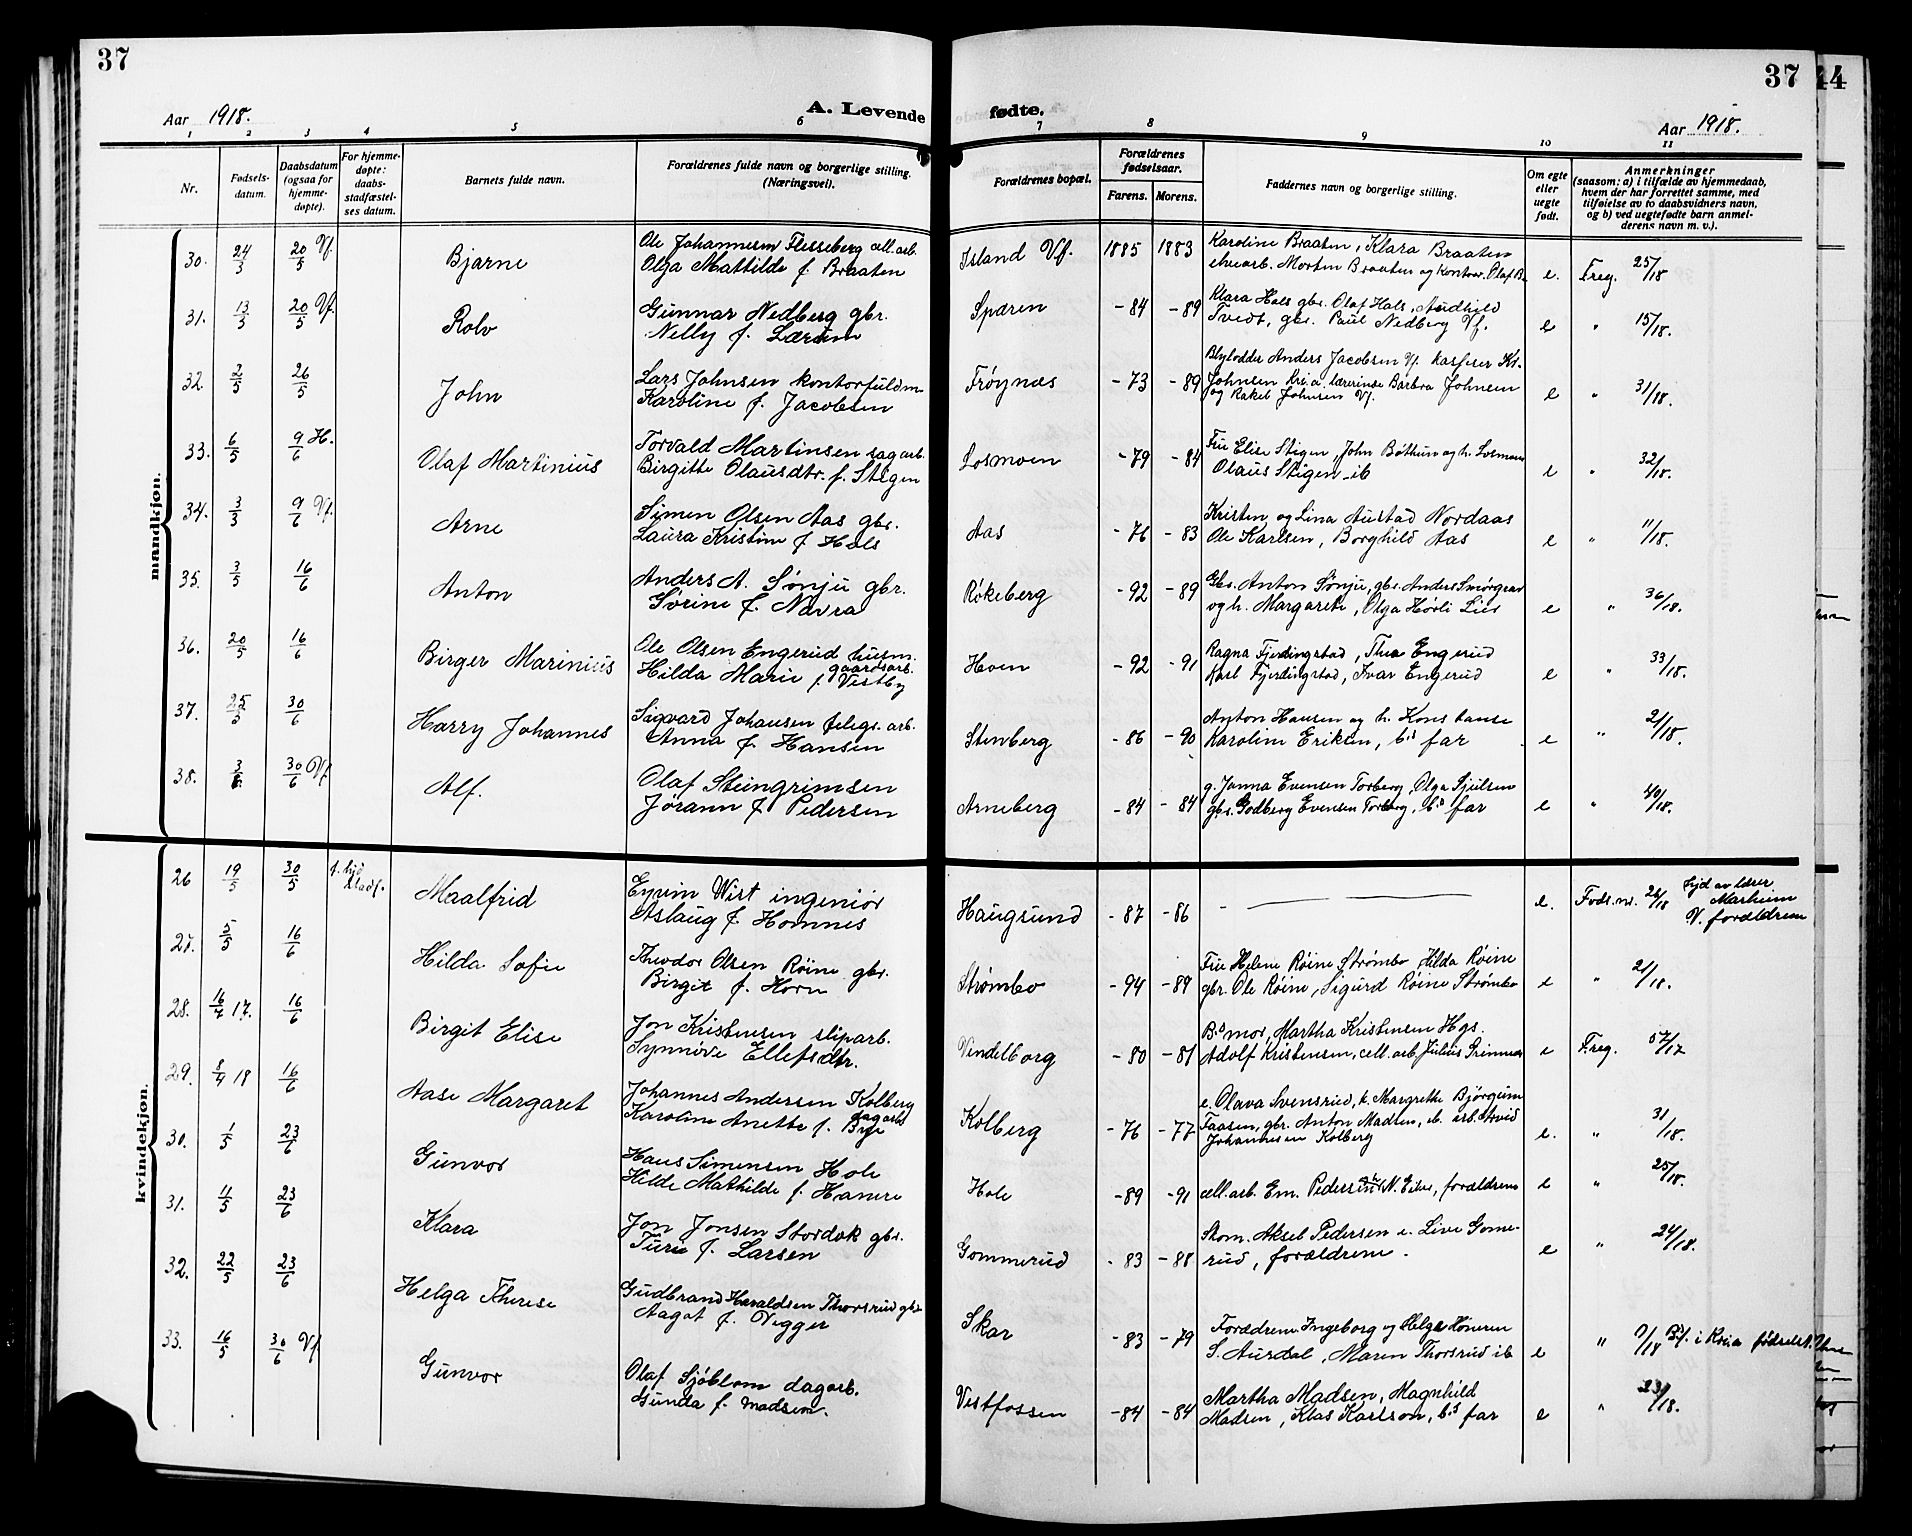 37
37
44
Aar 1918.
A. Levende
fødte.
Aar 1918.
1 2 3 4 5 6 7 8 9 10 11
Nr.
Fødsels-
datum.
Daabsdatum
(ogsaa for
hjemme-
døpte).
For hjemme-
døpte:
daabs-
stadfæstel-
ses datum.
Barnets fulde navn.
Forældrenes fulde navn og borgerlige stilling.
(Næringsvei).
Forældrenes bopæl.
Forældrenes
fødselsaar.
Farens. Morens.
Faddernes navn og borgerlige stilling.
Om egte
eller
uegte
født.
Anmerkninger
(saasom: a) i tilfælde av hjemmedaab,
hvem der har forrettet samme, med
tilføielse av to daabsvidners navn,
og b) ved uegtefødte barn anmel-
derens navn m. v.).
mandkjøn.
30. 24/3 20/5 Vf. Bjarne
Ole Johannesen Flesseberg cell. arb.
Olga Mathilde f. Braaten
Island Vf. 1885 1883
Karoline Braaten, Klara Braaten
elvearb. Morten Braaten og kontor. Olaf B.
e. Freg. 25/18
31. 13/3 20/5 Vf. Rolv
Gunnar Nedberg gbr.
Nelly f. Lærum
Spæren -84 -89
Klara Hals gbr. Olaf Hals, Audhild
Tvedt, gbr. Paul Nedberg Vf.
e " 15/18.
32. 2/5 26/5 John
Lars Johnsen kontorfuldm.
Karoline f. Jacobsen
Frøynæs -73 -89
Blylodder Anders Jacobsen Vf. kasserer Kr.
Johnsen Kr.a. lærerinde Barbra Johnsen
og Rakel Johnsen Vf.
e " 31/18.
33. 6/5 9/6 H. Olaf Martinius
Torvald Martinsen sagarb.
Birgitte Olausdtr. f. Stigen
Losmoen -79 -84
Fru Elise Stigen, John Bøthun og h. Losmoen
Olaus Stigen ib
e " 32/18.
34. 3/3 9/6 Vf. Arne
Simen Olsen Aas gbr.
Laura Kristine f. Hals
Aas -76 -83
Kristen og Lina Austad Nordaas
Ole Karlsen, Borghild Aas
e " 11/18.
35. 3/5 16/6 Anton
Anders A. Sønju gbr.
Sørine f. Navra
Røkeberg -92 -89
Gbr. Anton Sønju, gbr. Anders Smørgrav
og h. Margarete, Olga Hørli Lier
e " 36/18.
36. 20/5 16/6 Birger Marinius
Ole Olsen Engerud husm.
gaardsarb.
Hilda Marie f. Vestby
Hoen -92 -91
Ragna Fjerdingstad, Thea Engerud
Karl Fjerdingstad, Ivar Engerud
e " 33/18.
37. 25/5 30/6 Harry Johannes
Sigvard Johansen telegr. arb.
Anna f. Hansen
Stenberg -86 -90
Anton Hansen og h. Konstanse
Karoline Eriksen, b.s far
e " 21/18.
38. 3/5 30/6 Vf. Alf.
Olaf Steingrimsen
Jørann f. Pedersen
Arneberg -84 -84
g. Janna Evensen Torberg, Olga Sjulsen
gbr. Godberg Evensen Torberg, b.s far
e " 40/18.
kvindekjøn.
26 19/5 30/5 f. hjd stadf. Maalfrid
Wist ingeniør
Aslaug f. Homnes
Haugsund -87 -86
-
e. Føds.nr. 26/18 hjd av lærer
Marheim
V. forældrene
27. 5/5 16/6 Hilda Sofie
Theodor Olsen Røine gbr.
Birgit f. Horn
Strømbo -94 -89
Fru Helene Røine Strømbo, Hilda Røine
gbr. Ole Røine, Sigurd Røine Strømbo
e " 21/18.
28. 16/4 17. 16/6 Birgit Elise
Jon Kristensen sliparb.
Synnøve Ellefsdtr.
Vindelborg -80 -81
B.s mor, Martha Kristensen Hgs.
Adolf Kristensen, cell. arb. Julius
e Freg. 57/17
29. 8/4 18 16/6 Aase Margaret
Johannes Andersen Kolberg
dagarb.
Karoline Anette f. Bye
Kolberg -76 -77
e. Olava Svensrud, k. Margrethe Bjørgum
Faasen, gbr. Anton Madsen, eb. arb. Arvid
Johannesen Kolberg
e. " 31/18.
30. 1/5 23/6 Gunvor
Hans Simensen Hole
Hilde Mathilde f. Hanere
Hole -89 -91
cell. arb. Em. Pedersen N. Eiker, forældrene
e " 25/18.
31. 11/5 23/6 Klara
Jon Jonsen Stordok gbr.
Turie f. Larsen
Gommerud -83 -88
Skom. Aksel Pedersen e. Live Gome-
rud, forældrene.
e " 24/18.
32. 22/5 23/6 Helga Therese
Gudbrand Haraldsen Thorsrud gbr
Aagot f. Vegger
Skar -83 -79
Forældrene Ingeborg og Helge Høneren
S. Aurdal, Maren Thorsrud ib
e " i Kr.a fødselst.
33. 16/5 30/6 Vf. Gunvor
Olaf Sjøblom dagarb.
Gunda f. Madsen.
Vestfossen -84 -84
Martha Madsen, Magnhild
Madsen, Klas Karlson, b.s far
e " 23/18.